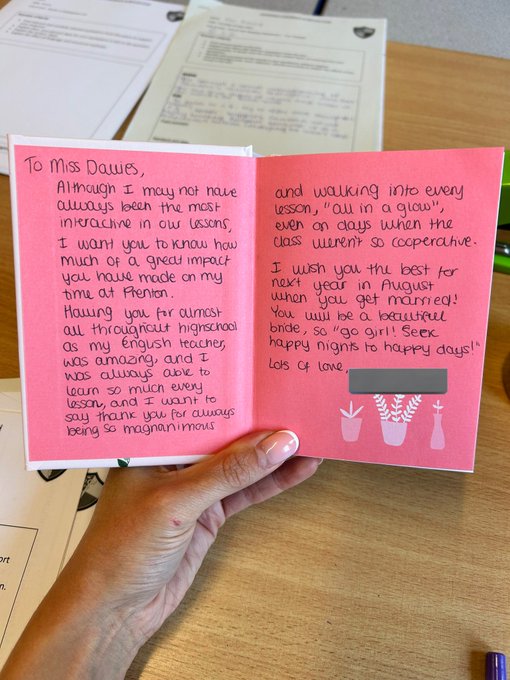 To Miss Davies,
Although I may not have
always been the most
interactive in our lessons,
I want you to know how
much of a great impact
you have made on my
time at Prenton.
Having you for almost
all throughout highschool
as my English teacher,
was amazing, and I
was always able to
learn so much every
lesson, and I want to
say thank you for always
being so magnanimous
and walking into every
lesson, "all in a glow",
even on days when the
class weren't so cooperative.
I wish you the best for
next year in August
when you get married!
You will be a beautiful
bride, so "go girl! Seek
happy nights to happy days!"
Lots of love,